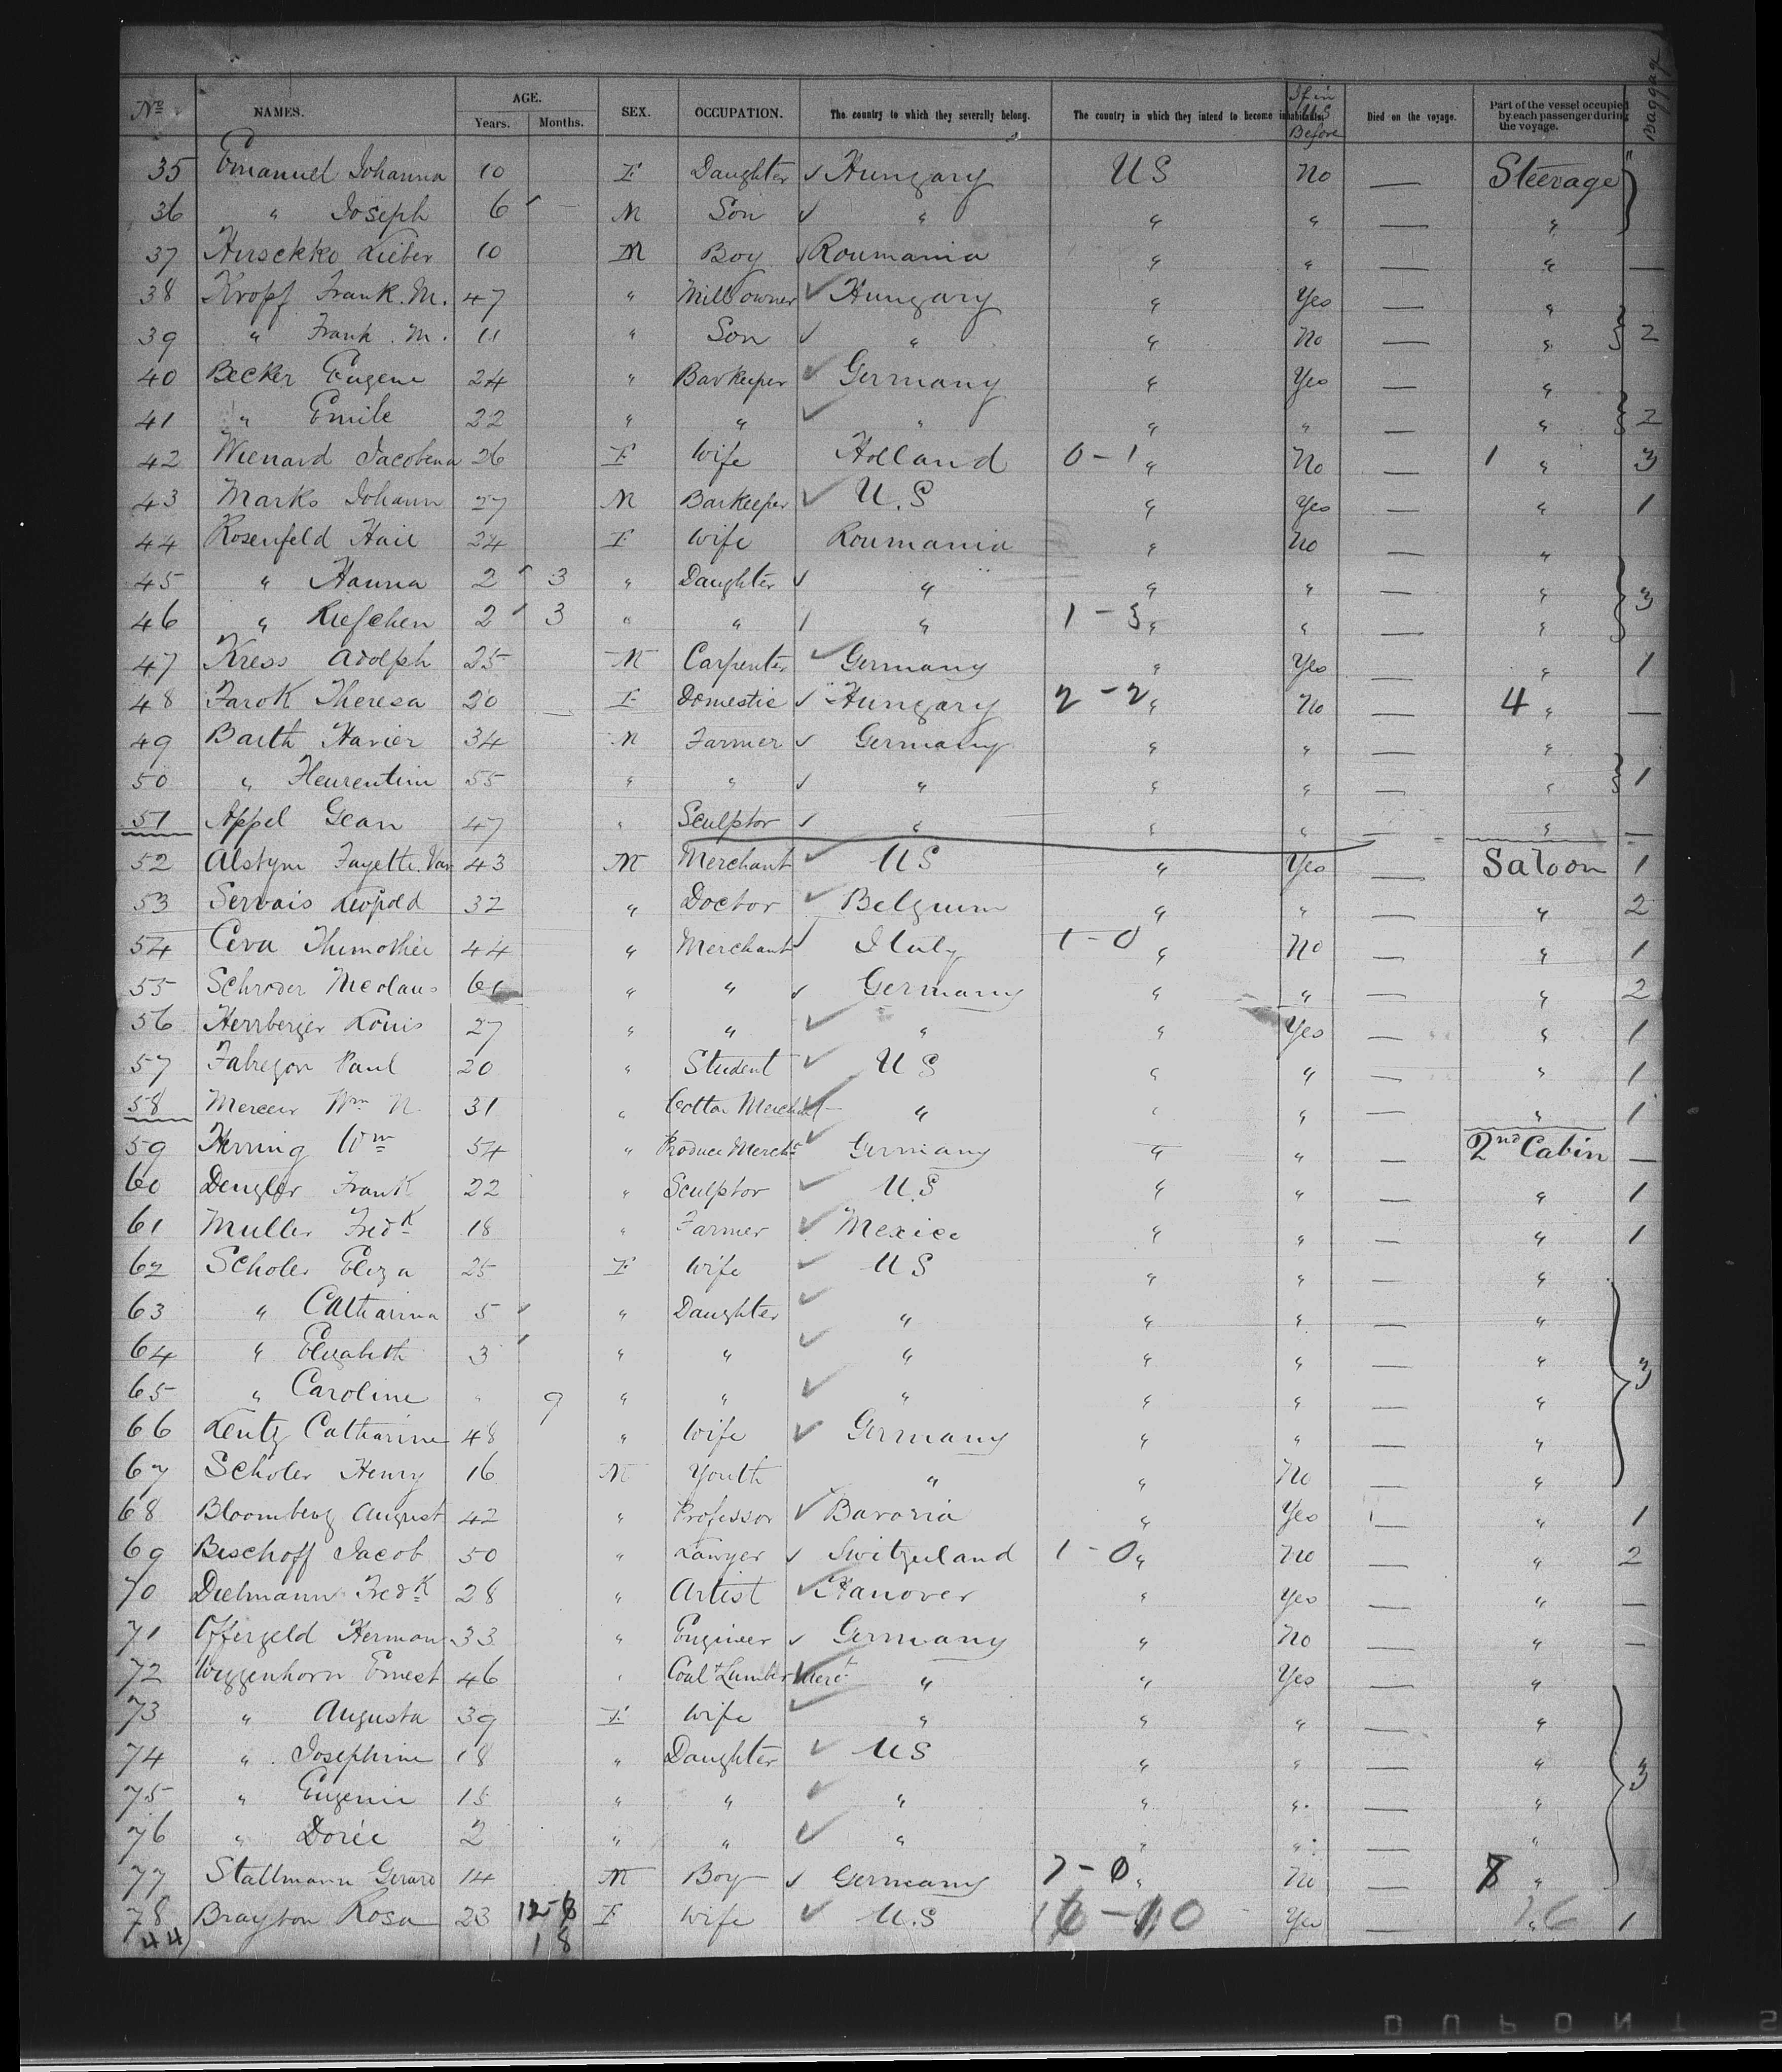 No NAMES. AGE. Years. Months. SEX. OCCUPATION. The country to which they severally belong. The country in which they intend to become inhabitants. If in US Before Died on the voyage. Part of the vessel occupied by each passenger during the voyage. Baggage
35 Emanuel Johanna 10 F Daughter ✓ Hungary US No — Steerage "
36 " Joseph 6 — M Son ✓ " " " — "
37 Hersckko Lieber 10 M Boy ✓ Roumania " " — " —
38 Kropf Frank. M. 47 " Mill owner ✓ Hungary " Yes — "
39 " Frank. M. 11 " Son ✓ " " No — " 2
40 Becker Eugene 24 " Barkeeper ✓ Germany " Yes — "
41 " Emile 22 " " ✓ " " " — " 2
42 Wienard Jacobena 26 F Wife Holland 0-1 " No — 1 " 3
43 Marks Johann 27 M Barkeeper ✓ U.S " Yes — " 1
44 Rosenfeld Haie 24 F Wife Roumania " No — "
45 " Hanna 2 3 " Daughter ✓ " " " — " 3
46 " Riefchen 2 3 " " / " 1-3 " " — "
47 Kress Adolph 25 M Carpenter ✓ Germany " Yes — " 1
48 Farok Theresa 20 — F Domestic ✓ Hungary 2-2 " No — 4 " —
49 Barth Xavier 34 M Farmer ✓ Germany " " — "
50 " Fleurentim 55 " " ✓ " " " — " 1
51 Appel Gean 47 " Sculptor ✓ " " " — " —
52 Alstyn Fayette. Van 43 M Merchant ✓ US " Yes — Saloon 1
53 Servais Leopold 32 " Doctor ✓ Belgium " " — " 2
54 Ceva Thimothée 44 " Merchant ✓ Italy 1-0 " No — " 1
55 Schroder Nicolaus 61 " " ✓ Germany " " — " 2
56 Herrberger Louis 27 " " ✓ " " Yes — " 1
57 Fabregon Paul 20 " Student ✓ US " " — " 1
58 Mercer Wm N. 31 " Cotton Merchant ✓ " " " — " 1
59 Herring Wm 54 " Produce Mercht ✓ Germany " " 2nd Cabin —
60 Dengler Frank 22 " Sculptor ✓ U.S " " — " 1
61 Muller Fredk 18 " Farmer ✓ Mexico " " — " 1
62 Scholer Eliza 25 F Wife ✓ US " " — "
63 " Catharina 5 " Daughter ✓ " " " — "
64 " Elizabeth 3 " " ✓ " " " — " 3
65 " Caroline " 9 " " ✓ " " " — "
66 Lentz Catharine 48 " Wife ✓ Germany " " — "
67 Scholer Henry 16 M Youth " " No — "
68 Bloomberg August 42 " Professor ✓ Bavaria " Yes — " 1
69 Bischoff Jacob 50 " Lawyer ✓ Switzerland 1-0 " No — " 2
70 Dielmann Fredk 28 " Artist ✓ Hanover " Yes — " —
71 Offergeld Herman 33 " Engineer ✓ Germany " No — " —
72 Wiggenhorn Ernest 46 " Coal + Lumber Mert ✓ " " Yes — "
73 " Augusta 39 F Wife ✓ " " " — "
74 " Josephine 18 " Daughter ✓ US " " — "
75 " Eugenie 15 " " ✓ " " " — " 3
76 " Dorée 2 " " ✓ " " " — "
77 Stallmann Gerard 14 M Boy ✓ Germany 7-0 " No — 8 "
78 Brayton Rosa 23 12-6 F Wife ✓ U.S 16-10 Yes — 16 1
44 18
DUPONT S